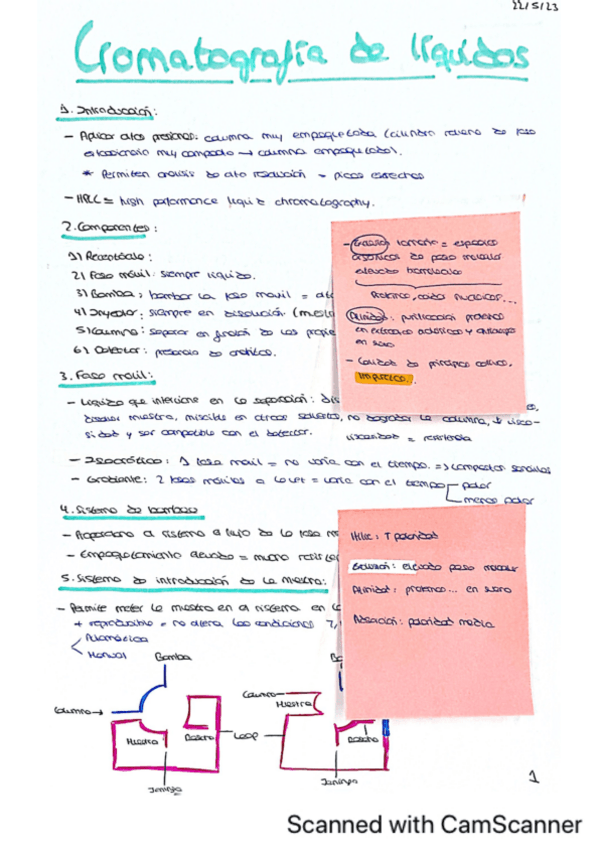 22/5/23
Cromatografía de líquidos
1. Introducción:
- Aplicar altas presiones: columna muy empaquetada (cilindro relleno de fase
estacionaria muy compacto → columna empaquetada).
* Permiten análisis de alta resolución - picos estrechos
- HPLC = high performance liquid chromatography.
2. Componentes:
1) Receptáculo:
2) Fase móvil: siempre líquido.
3) Bomba: bombear la fase móvil =
4) Inyector: siempre en disolución
5) Columna: separar en función de las
6) Detector: presencia de analitos.
3. Fase móvil:
- Líquido que interviene en la separación:
disolver muestra, miscible en otros solventes, no degradar la columna, ↓ visco-
sidad y ser compatible con el detector.
viscosidad = resistencia
- Isocrático: 1 fase móvil = no varía con el tiempo. => compuestos sencillos
- Gradiente: 2 fases móviles a la vez = varía con el tiempo
polar
menos polar
4. Sistema de bombeo
- Proporciona al sistema el flujo de la fase
- Empaquetamiento elevado = mucha
5. Sistema de introducción de la muestra:
- Permite meter la muestra en el sistema en
+ reproducible = no altera las condiciones
Automática
Manual
Bomba
Columna →
Muestra
Desecho
Loop
Jeringa
Columna
Muestra
Desecho
Jeringa
- Exclusión tamaño =
de peso molecular
elevado
Proteínas, ácidos nucleicos...
Afinidad: purificación proteínas
en
en suero
- Calidad de principios activos,
impurezas...
Hilic: ↑ polaridad
Exclusión: elevado peso molecular
Afinidad: proteínas... en suero
Adsorción: polaridad media
1
Scanned with CamScanner